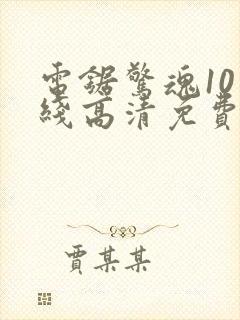 電鋸驚魂10
綫高清免費
賈某某